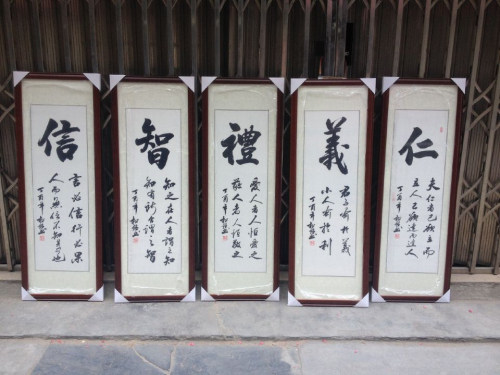 仁
夫仁者己欲立而
立人己欲達而達人
丁酉年
義
君子喻於義
小人喻於利
丁酉年
禮
愛人者人恒愛之
敬人者人恒敬之
丁酉年
智
知之在人者謂之知
知有所合謂之智
丁酉年
信
言必信行必果
人而無信不知其可也
丁酉年